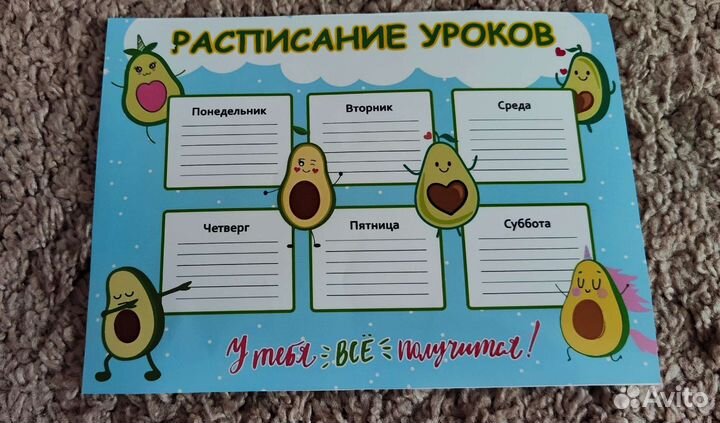 РАСПИСАНИЕ УРОКОВ
Понедельник
Вторник
Среда
Четверг
Пятница
Суббота
У тебя ВСЁ получится!
Avito